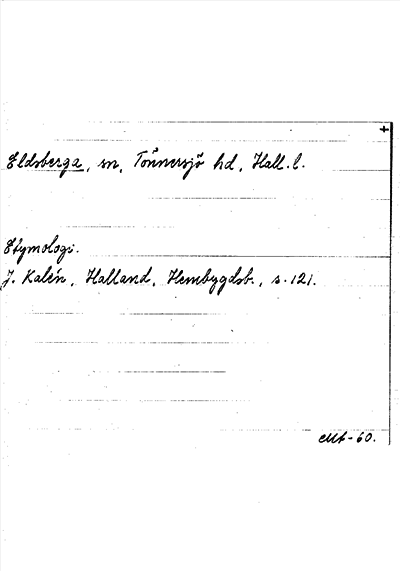 +
Eldsberga, sn, Tönnersjö hd, Hall. l.
Etymologi.
J. Kalén, Halland, Hembygdsb., s. 121.
-60.